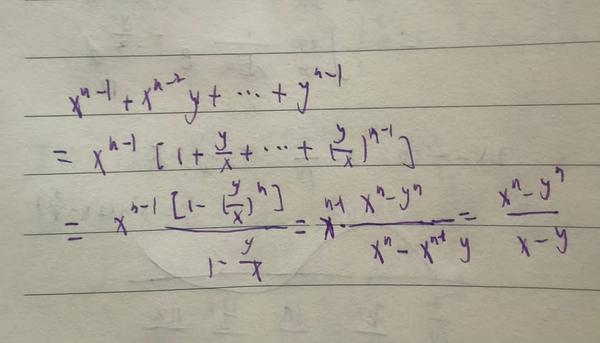 x^{n-1} + x^{n-2}y + ⋯ + y^{n-1}
= x^{n-1} [1 + \frac{y}{x} + ⋯ + (\frac{y}{x})^{n-1}]
= x^{n-1} \frac{[1 - (\frac{y}{x})^n]}{1 - \frac{y}{x}} = x^{n-1} \frac{x^n - y^n}{x^n - x^{n-1} y} = \frac{x^n - y^n}{x - y}